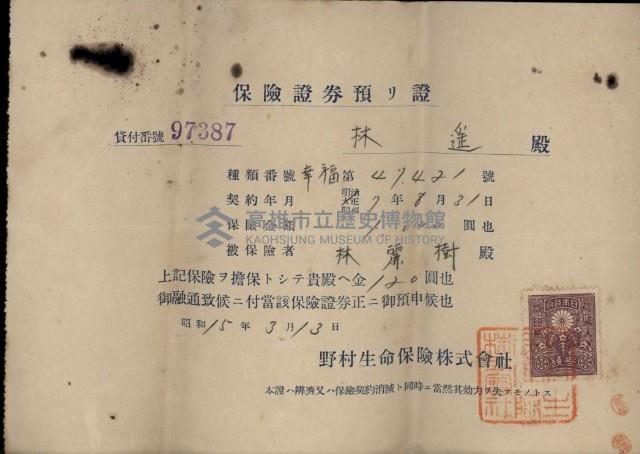 保險證券預リ證
貸付番號 97387
林遙 殿
種類番號 幸福 第 47421 號
契約年月 明治 大正 昭和 7年8月31日
保險金額 圓也
被保險者 林麗樹 殿
上記保險ヲ擔保トシテ貴殿ヘ金120圓也
御融通致候ニ付當該保險證券正ニ御預申候也
昭和15年3月13日
野村生命保險株式會社
本證ハ辨濟又ハ保險契約消滅ト同時ニ當然其効力ヲ失フモノトス
高雄市立歷史博物館
KAOHSIUNG MUSEUM OF HISTORY